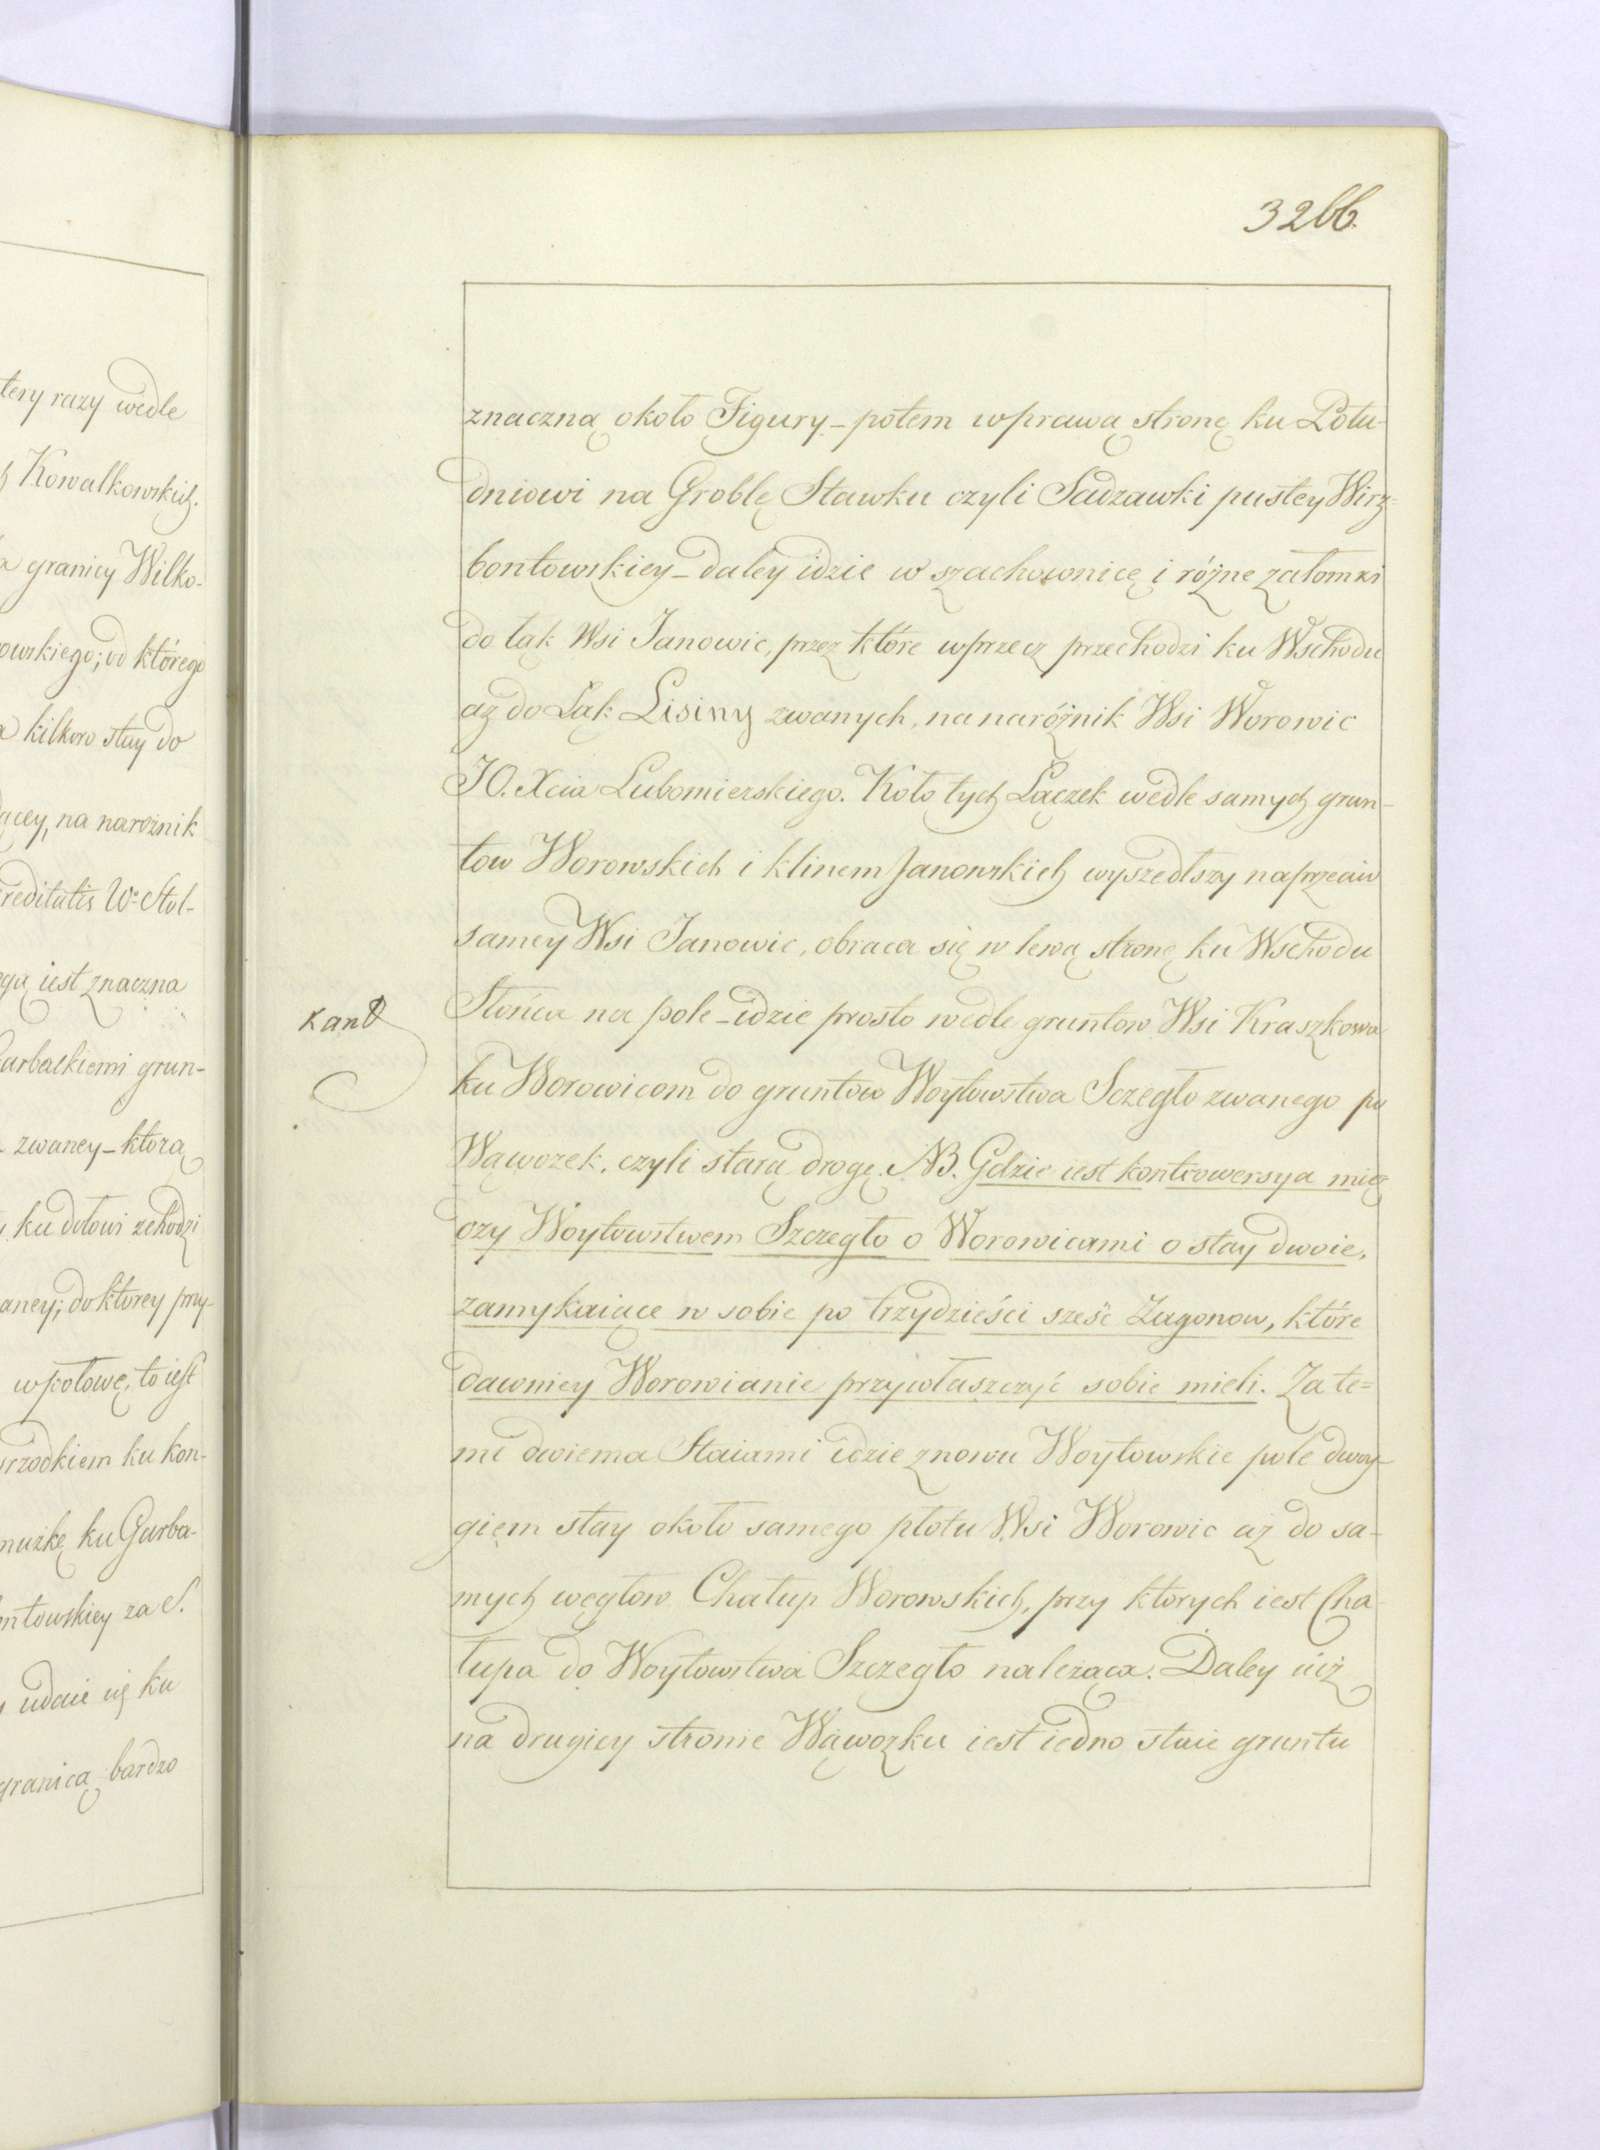 tery razy wedle
Kowalkowskich.
granicy Wilko-
owskiego; od którego
kilkoro stay do
ącey, na narożnik
reditatis Wo Stol-
gą iest znaczna
arbalkiemi grun-
zwaney_ktorą
ku dołowi zchodzi
aney; do ktorey przy-
wpołowę, to iest
rzodkiem ku kon-
nużkę ku Garba-
ntowskiey za S.
udaie się ku
granicą bardzo
32bb.
znaczną około Figury_potem wprawą stronę ku Połu-
dniowi na Groblę Stawku czyli Sadzawki pustey Wirz-
bontowskiey_daley idzie w szachownicę i różne załomki
do łąk Wsi Janowic, przez które wprzecz przechodzi ku Wschodu
aż do Łąk Lisiny zwanych, na narożnik Wsi Worowic
JO. Xcia Lubomierskiego. Koło tych Łączek wedle samych grun-
tow Worowskich i klinem Janowskich wyszedłszy naprzeciw
samey Wsi Janowic, obraca się w lewą stronę ku Wschodu
Słońca na pole_idzie prosto wedle gruntow Wsi Kraszkowa
Kant
ku Worowicom do gruntow Woytowstwa Sczegło zwanego po
Wąwozek, czyli starą drogę. NB. Gdzie iest kontrowersya mię
czy Woytowstwem Szczegło o Worowicami o stay dwoie,
zamykaiące w sobie po trzydzieści sześć Zagonow, które
dawniey Worowianie przywłaszczyć sobie mieli. Za te=
mi dwiema Staiami idzie znowu Woytowskie pole dwoy-
giem stay około samego płotu Wsi Worowic aż do sa-
mych węgłow Chałup Worowskich, przy ktorych iest Cha
łupa do Woytowstwa Szczegło należąca. Daley iuż
na drugiey stronie Wąwozku iest iedno staie gruntu